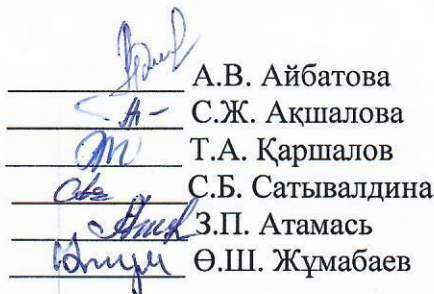 А.В. Айбатова
С.Ж. Ақшалова
Т.А. Қаршалов
С.Б. Сатывалдина
З.П. Атамась
Ө.Ш. Жұмабаев